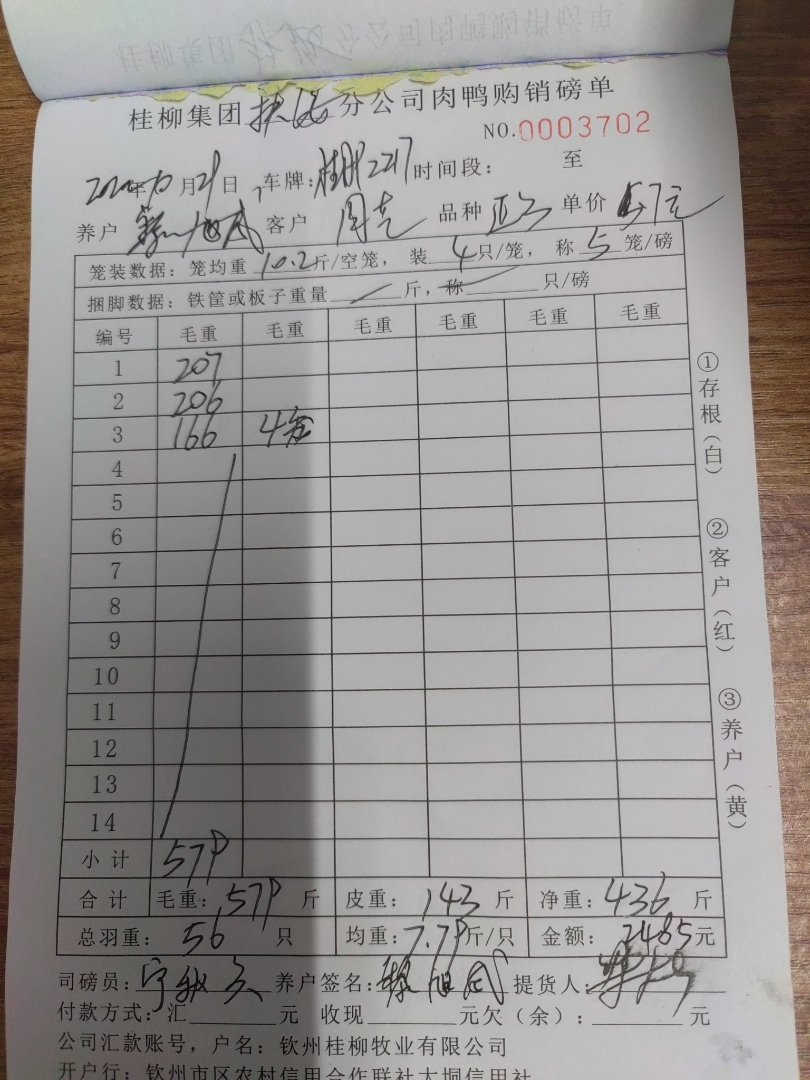 桂柳集团 分公司肉鸭购销磅单
NO.0003702
年10月21日,车牌:桂 2217 时间段: 至
养户 旭武 客户 周 品种 单价 5.7元
笼装数据:笼均重10.2斤/空笼,装4只/笼,称5笼/磅
捆脚数据:铁筐或板子重量 / 斤,称 只/磅
编号 毛重 毛重 毛重 毛重 毛重 毛重
1 207
2 206
3 166 4笼
4
5
6
7
8
9
10
11
12
13
14
小计 579
合计 毛重:579斤 皮重:143斤 净重:436斤
总羽重:56只 均重:7.79斤/只 金额:2485元
司磅员:宁 养户签名: 旭武 提货人:
付款方式:汇 元 收现 元欠(余): 元
公司汇款账号,户名:钦州桂柳牧业有限公司
开户行:钦州市区农村信用合作联社大垌信用社
①存根(白)
②客户(红)
③养户(黄)